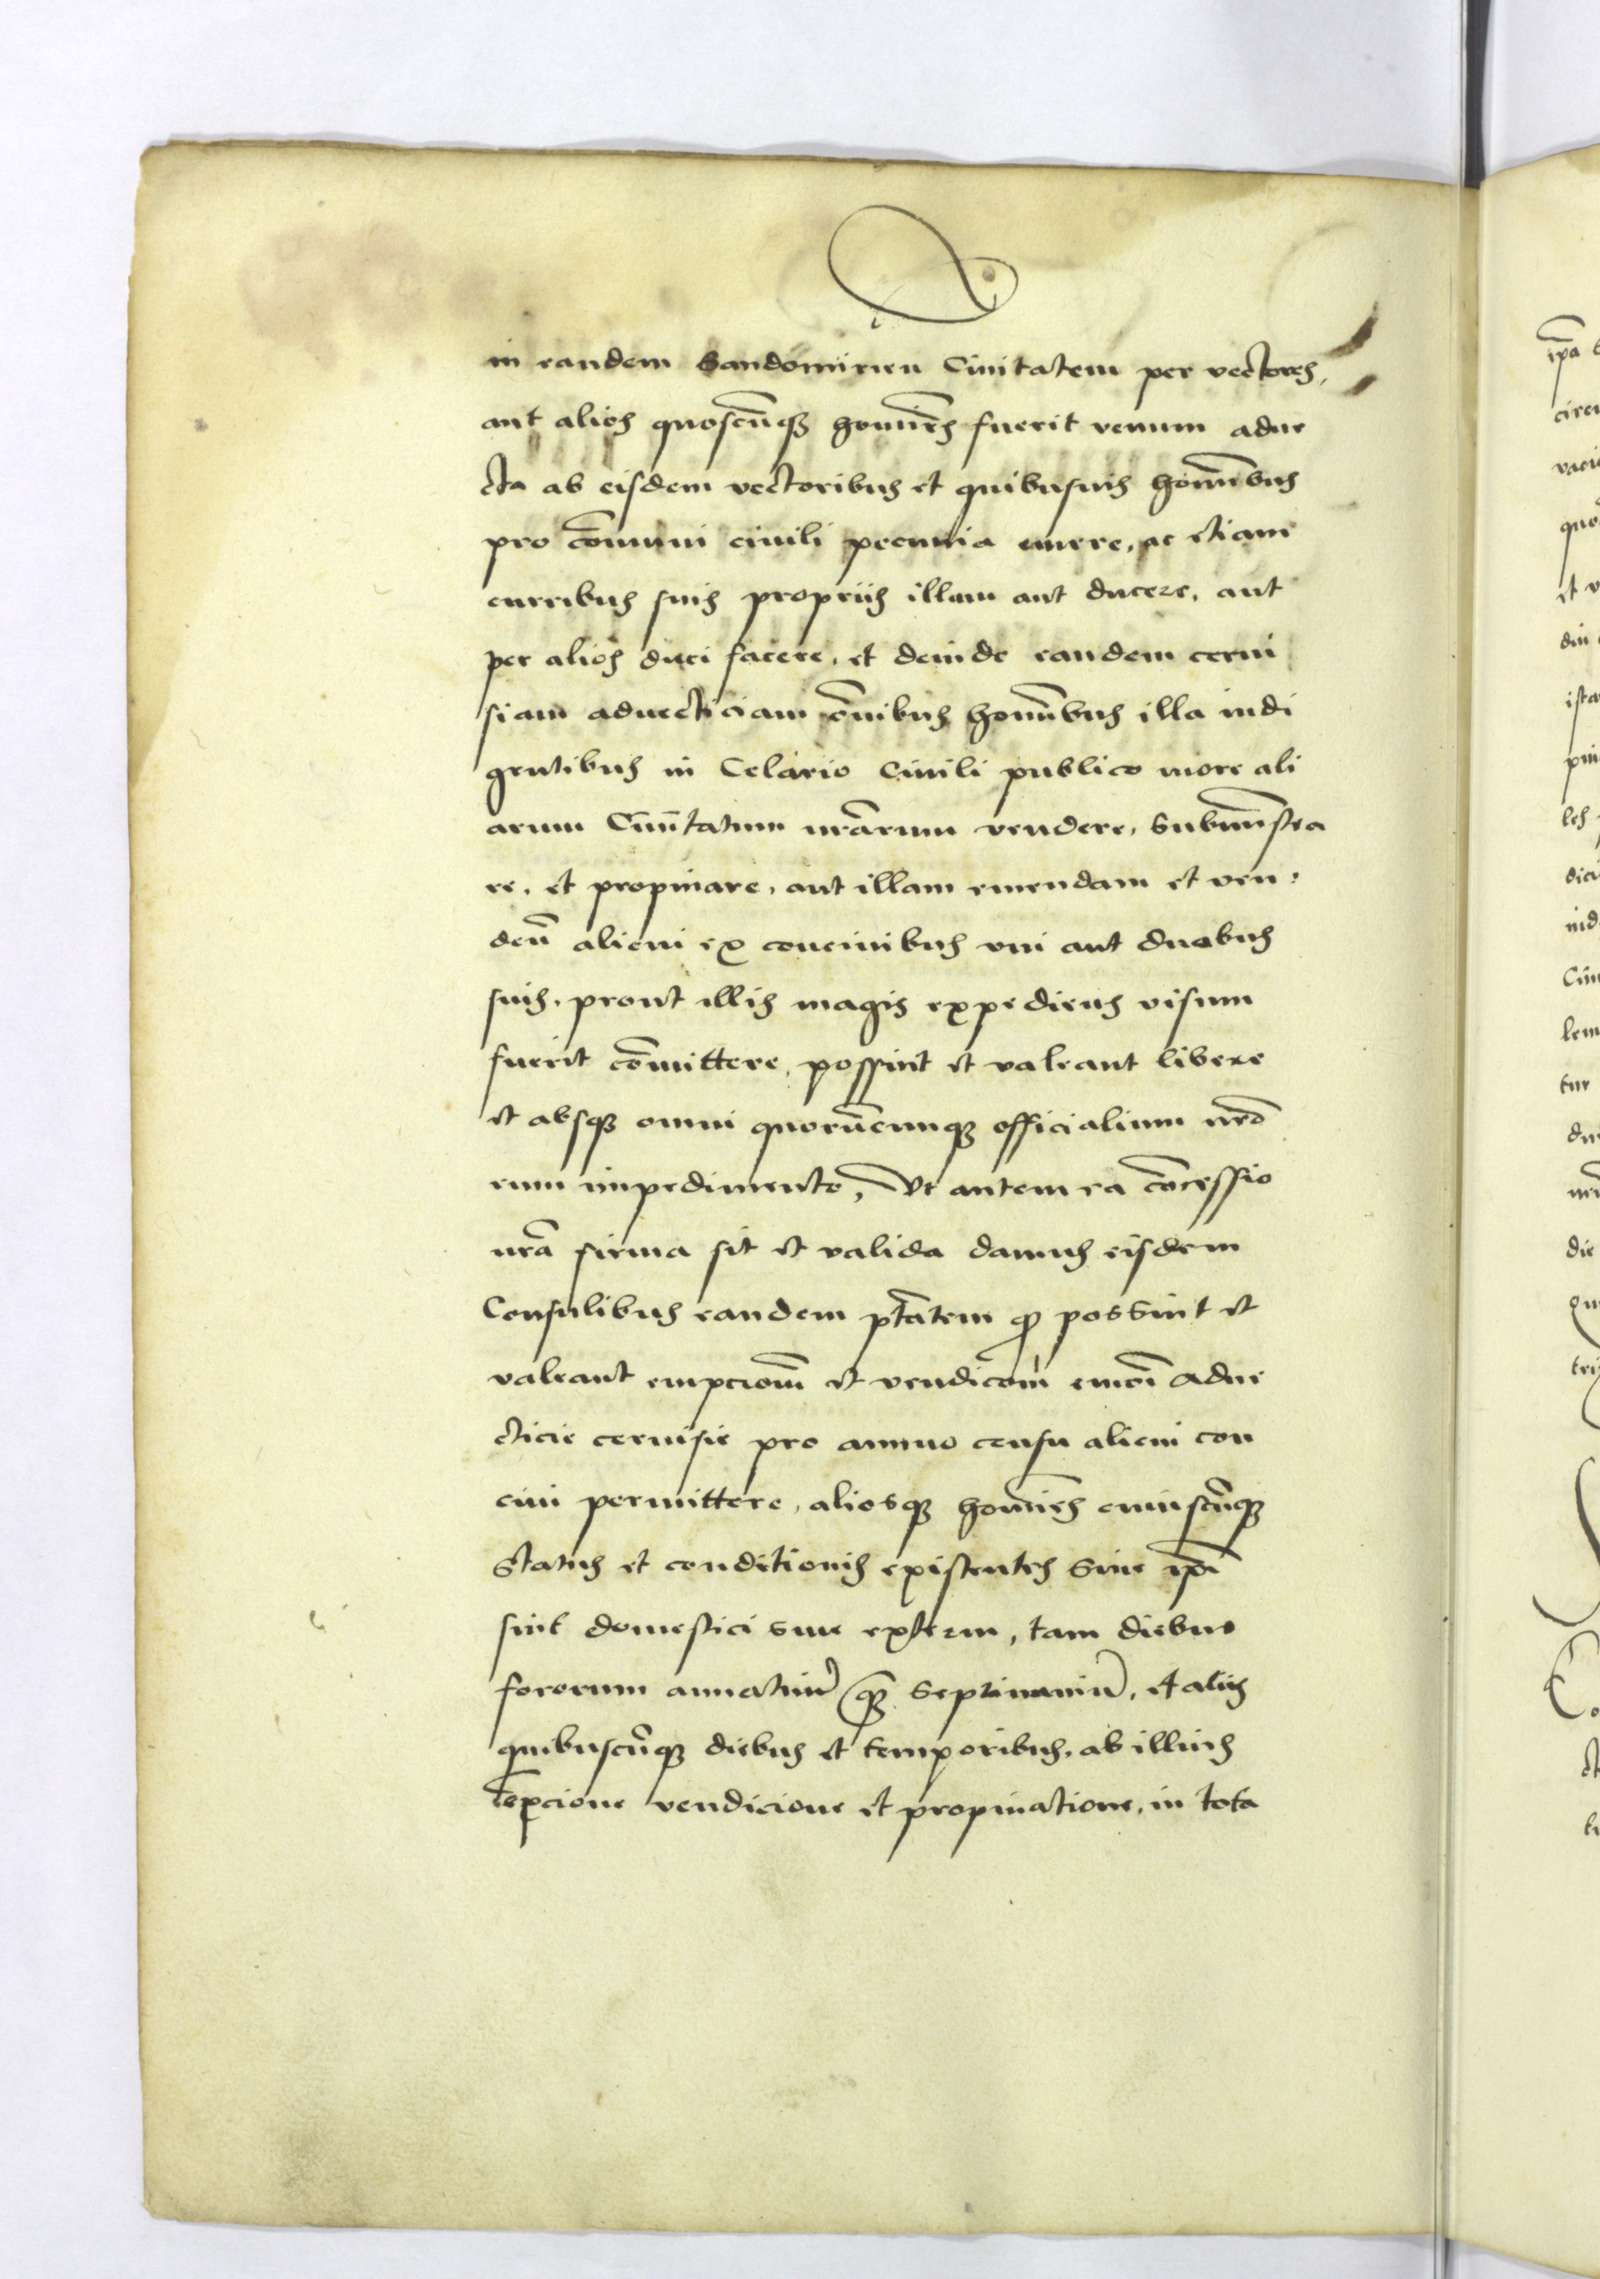 in eandem Sandomirien Ciuitatem per vectores,
aut alios quoscūqȝ homīes fuerit venum adue
cta ab eisdem vectoribus et quibusuis homībus
pro cōmuni ciuili pecunia emere, ac etiam
curribus suis propriis illam aut ducere, aut
per alios duci facere, et deinde eandem cerui
siam aduecticiam oībus homībus illa indi
gentibus in Celario Ciuili publico more ali
arum Ciuītatum nrārum vendere, submīstra
re, et propinare, aut illam emendam et ven,
dēn alicui ex conciuibus vni aut duobus
suis, prout illis magis expediens visum
fuerit cōmittere, possint et valeant libere
et absqȝ omni quorūcunqȝ officialium nrō
rum impedimento, Vt autem ea cōncessio
nrā firma sit et valida damus eisdem
Consulibus eandem ptātem qȝ possint et
valeant empcionē et vendicōnē adue
cticie ceruisie pro annuo censu alicui con
ciui permittere, aliosqȝ homīes cuiuscūqȝ
status et conditionis existentes siue ipī
sint domestici siue externi, tam diebus
fororum annaliū qȝ septimaniū, et aliis
quibuscūqȝ diebus et temporibus, ab illius
empcione vendicione et propinatione, in tota